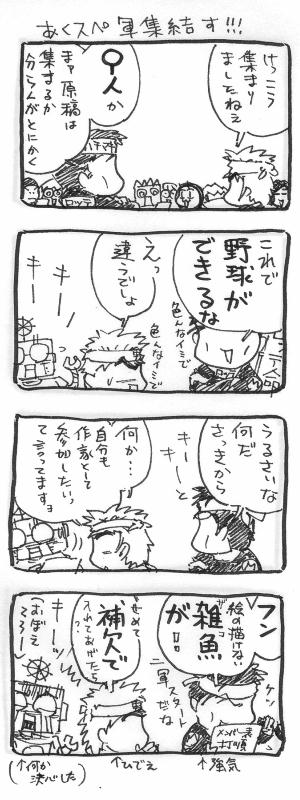 あくスペ軍集結す!!!
けっこう
集まり
ましたねえ
9人か
まァ原稿は
集まるか
分らんがとにかく
これで
野球が
できるな
色んなイミで
えっ
違うでしょ
色んなイミで
キーッ
キー
うるさいな
何だ
さっきから
キー
キーと
何か…
自分も
作家として
参加したいっ
て言ってますョ
フン
絵の描けない
雑魚
ザコ
が!!
二軍スタート
だな
メンバー表
打順
↑強気
せめて
補欠で
入れてあげたら
↑ひでえ
キーッ
(おぼえ
てろー)
(↑何か
決心した)